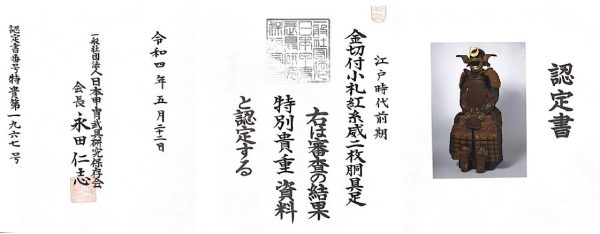 認定書
江戸時代前期
金切付小札紅糸威二枚胴具足
右は審査の結果
特別貴重資料
と認定する
令和四年五月二十二日
一般社団法人日本甲冑武具研究保存会
会長 永田仁志
認定書番号特貴第一九六七号